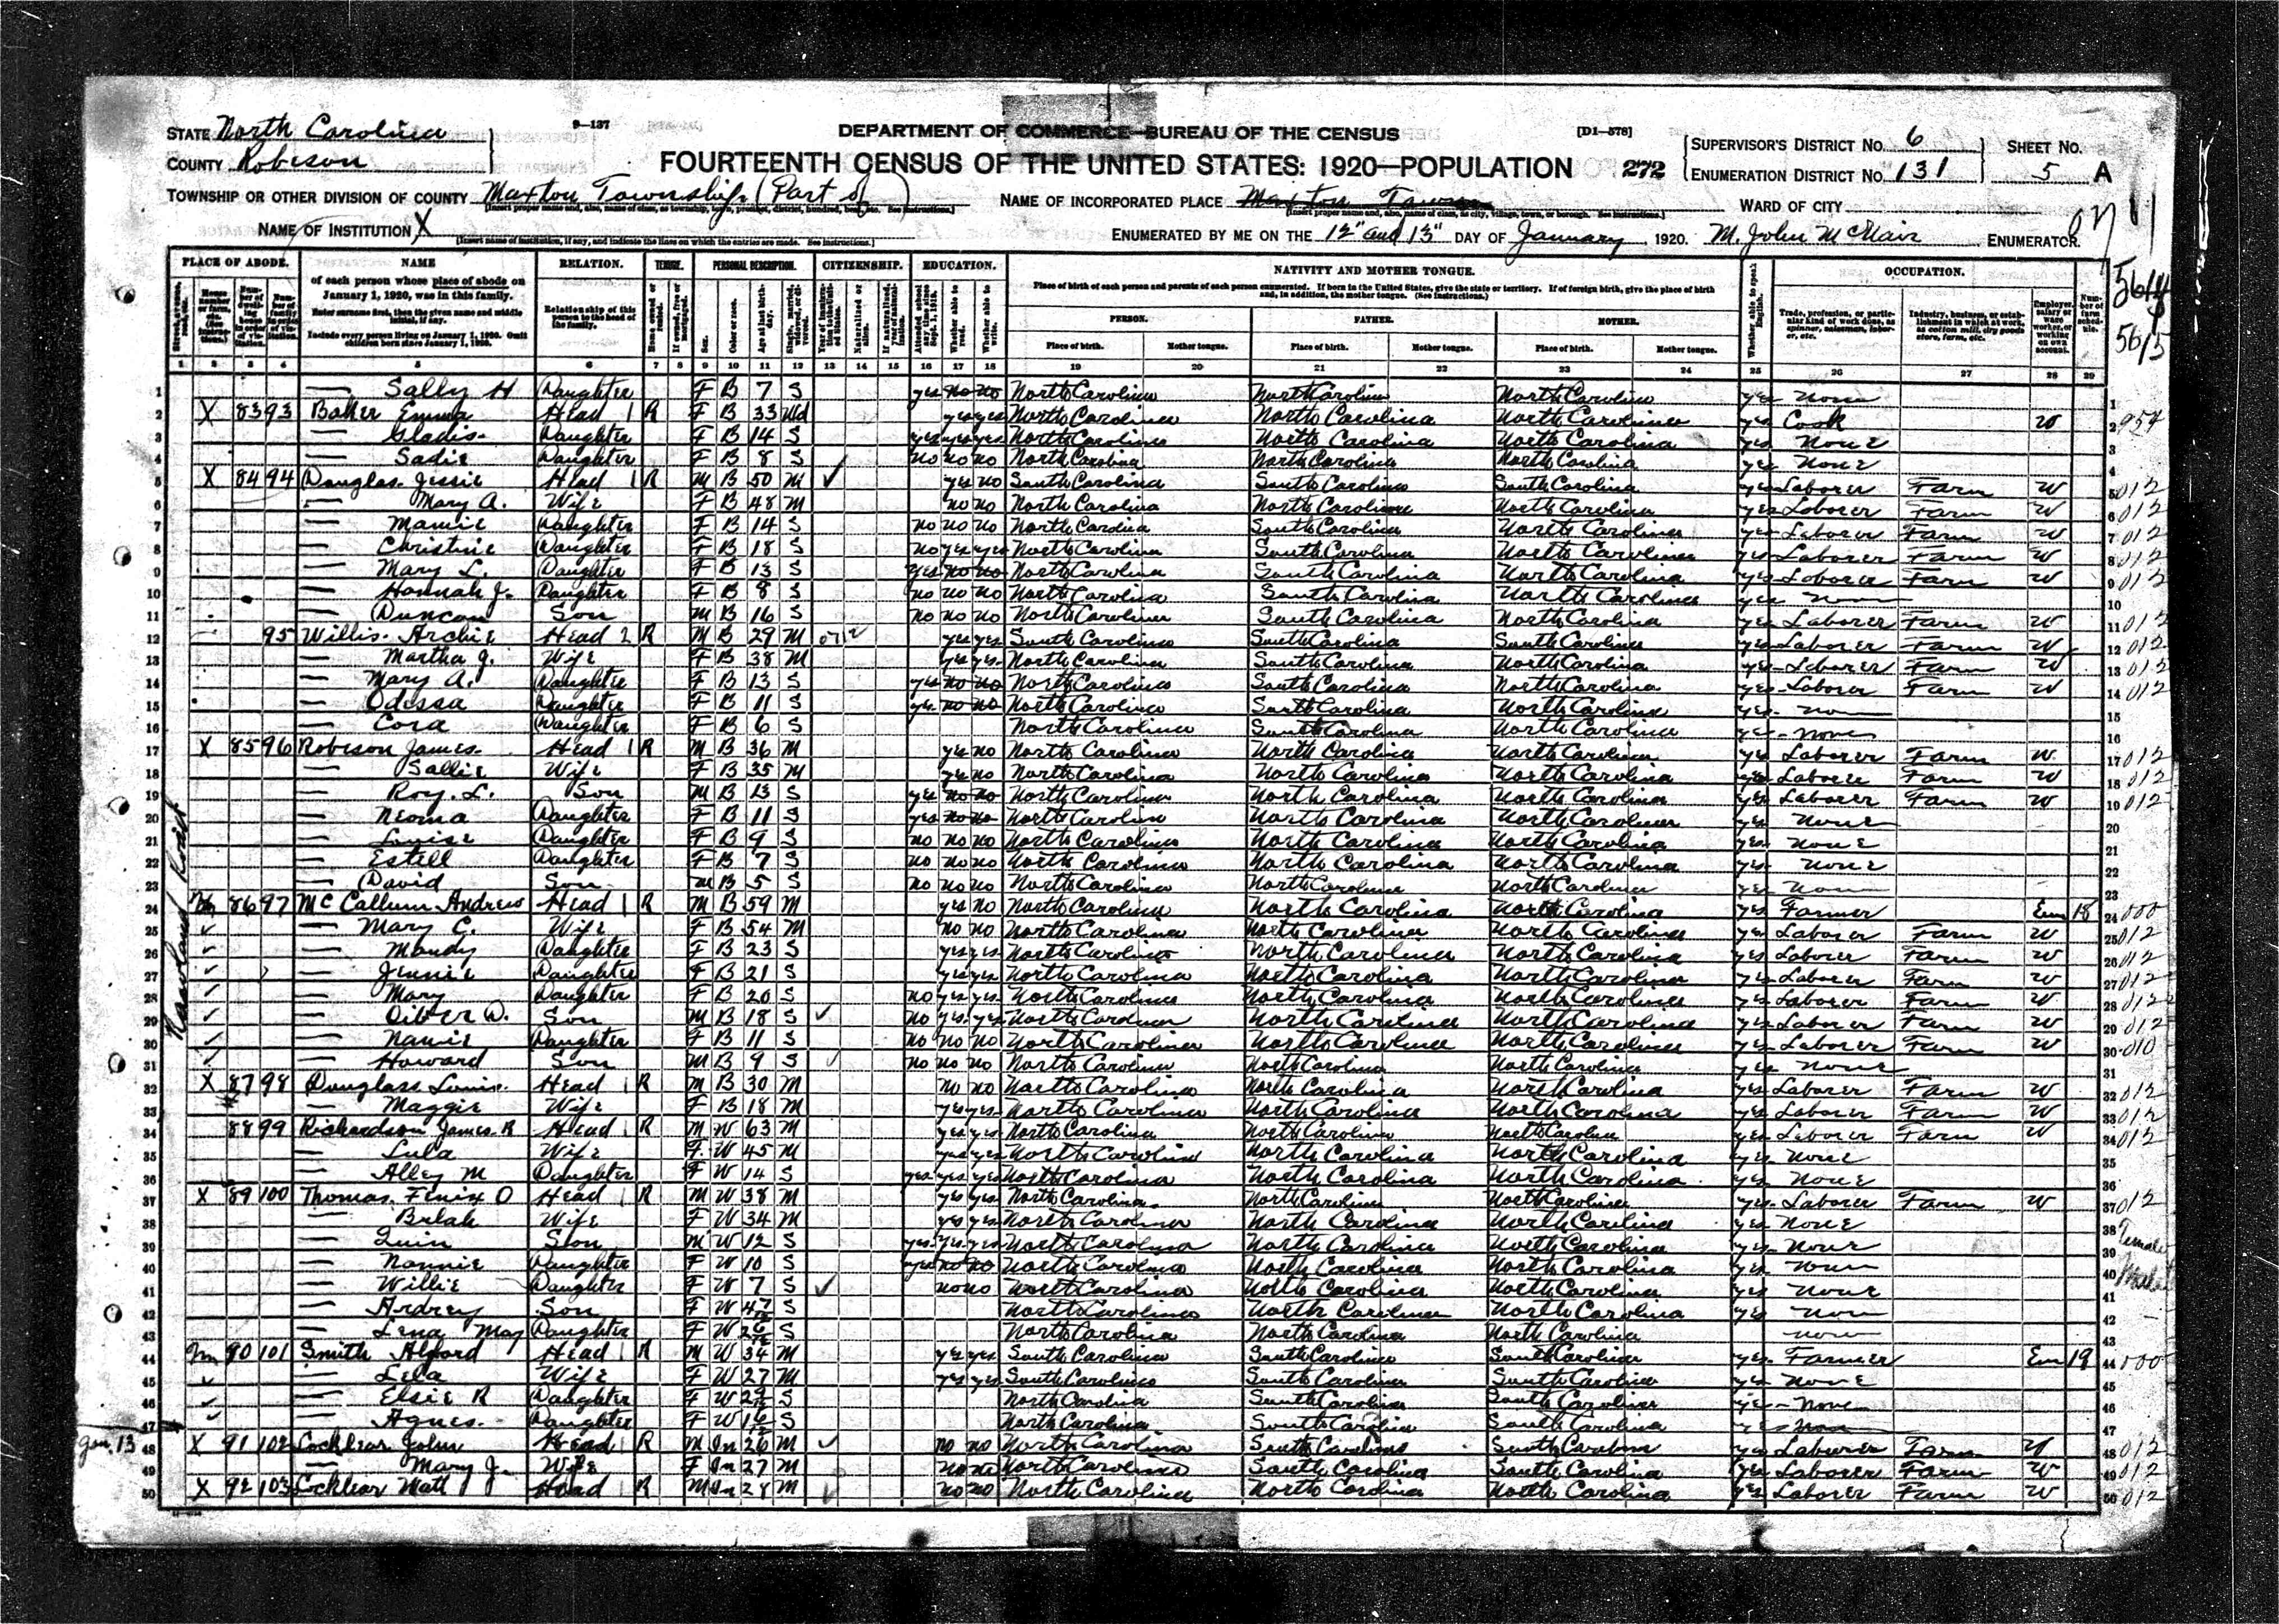 9—137
DEPARTMENT OF COMMERCE—BUREAU OF THE CENSUS
[D1—578]
STATE North Carolina
COUNTY Robeson
FOURTEENTH CENSUS OF THE UNITED STATES: 1920—POPULATION
272
SUPERVISOR'S DISTRICT No. 6
ENUMERATION DISTRICT No. 131
SHEET No. 5 A
TOWNSHIP OR OTHER DIVISION OF COUNTY Maxton Township (Part of)
NAME OF INCORPORATED PLACE Maxton Town
WARD OF CITY
NAME OF INSTITUTION X
ENUMERATED BY ME ON THE 12" and 13" DAY OF January, 1920. M. John McNair ENUMERATOR.
PLACE OF ABODE. NAME RELATION. TENURE. PERSONAL DESCRIPTION. CITIZENSHIP. EDUCATION. NATIVITY AND MOTHER TONGUE. OCCUPATION.
of each person whose place of abode on January 1, 1920, was in this family.
Enter surname first, then the given name and middle initial, if any.
Include every person living on January 1, 1920. Omit children born since January 1, 1920.
Relationship of this person to the head of the family.
Place of birth of each person and parents of each person enumerated. If born in the United States, give the state or territory. If of foreign birth, give the place of birth and, in addition, the mother tongue. (See Instructions.)
PERSON. FATHER. MOTHER.
Place of birth. Mother tongue. Place of birth. Mother tongue. Place of birth. Mother tongue.
1 2 3 4 5 6 7 8 9 10 11 12 13 14 15 16 17 18 19 20 21 22 23 24 25 26 27 28 29
1 — Sally H Daughter F B 7 S yes no no North Carolina North Carolina North Carolina yes None
2 X 83 93 Baker Emma Head 1 R F B 33 Wd yes yes North Carolina North Carolina North Carolina yes Cook W
3 — Gladis Daughter F B 14 S yes yes yes North Carolina North Carolina North Carolina yes None
4 — Sadie Daughter F B 8 S no no no North Carolina North Carolina North Carolina yes None
5 X 84 94 Douglas Jessie Head 1 R M B 50 M yes no South Carolina South Carolina South Carolina yes Laborer Farm W 012
6 — Mary A. Wife F B 48 M no no North Carolina North Carolina North Carolina yes Laborer Farm W 012
7 — Mamie Daughter F B 14 S no no no North Carolina South Carolina North Carolina yes Laborer Farm W 012
8 — Christine Daughter F B 18 S no yes yes North Carolina South Carolina North Carolina yes Laborer Farm W 012
9 — Mary L. Daughter F B 13 S yes no no North Carolina South Carolina North Carolina yes Laborer Farm W 012
10 — Hannah J. Daughter F B 8 S no no no North Carolina South Carolina North Carolina yes None
11 — Duncan Son M B 16 S no no no North Carolina South Carolina North Carolina yes Laborer Farm W 012
12 95 Willis Archie Head 2 R M B 29 M yes yes South Carolina South Carolina South Carolina yes Laborer Farm W 012
13 — Martha J. Wife F B 38 M yes yes North Carolina South Carolina North Carolina yes Laborer Farm W 012
14 — Mary A. Daughter F B 13 S yes no no North Carolina South Carolina North Carolina yes Laborer Farm W 012
15 — Odessa Daughter F B 11 S yes no no North Carolina South Carolina North Carolina yes None
16 — Cora Daughter F B 6 S North Carolina South Carolina North Carolina yes None
17 X 85 96 Robeson James Head 1 R M B 36 M yes no North Carolina North Carolina North Carolina yes Laborer Farm W 012
18 — Sallie Wife F B 35 M yes no North Carolina North Carolina North Carolina yes Laborer Farm W 012
19 — Roy. L. Son M B 13 S yes no no North Carolina North Carolina North Carolina yes Laborer Farm W 012
20 — Neoma Daughter F B 11 S yes no no North Carolina North Carolina North Carolina yes None
21 — Louise Daughter F B 9 S no no no North Carolina North Carolina North Carolina yes None
22 — Estell Daughter F B 7 S no no no North Carolina North Carolina North Carolina yes None
23 — David Son M B 5 S no no no North Carolina North Carolina North Carolina yes None
Rowland Road
24 Fm 86 97 McCallum Andrew Head 1 R M B 59 M yes no North Carolina North Carolina North Carolina yes Farmer Em 18 000
25 — Mary C. Wife F B 54 M no no North Carolina North Carolina North Carolina yes Laborer Farm W 012
26 — Mandy Daughter F B 23 S yes yes North Carolina North Carolina North Carolina yes Laborer Farm W 012
27 — Jennie Daughter F B 21 S yes yes North Carolina North Carolina North Carolina yes Laborer Farm W 012
28 — Mary Daughter F B 20 S no yes yes North Carolina North Carolina North Carolina yes Laborer Farm W 012
29 — Oliver D. Son M B 18 S no yes yes North Carolina North Carolina North Carolina yes Laborer Farm W 012
30 — Nanie Daughter F B 11 S no no no North Carolina North Carolina North Carolina yes Laborer Farm W 010
31 — Howard Son M B 9 S no no no North Carolina North Carolina North Carolina yes None
32 X 87 98 Douglass Louis Head 1 R M B 30 M no no North Carolina North Carolina North Carolina yes Laborer Farm W 012
33 — Maggie Wife F B 18 M yes yes North Carolina North Carolina North Carolina yes Laborer Farm W 012
34 88 99 Richardson James R Head 1 R M W 63 M yes yes North Carolina North Carolina North Carolina yes Laborer Farm W 012
35 — Lula Wife F W 45 M yes yes North Carolina North Carolina North Carolina yes None
36 — Alley M Daughter F W 14 S yes yes yes North Carolina North Carolina North Carolina yes None
37 X 89 100 Thomas Fenix O Head 1 R M W 38 M yes yes North Carolina North Carolina North Carolina yes Laborer Farm W 012
38 — Bulah Wife F W 34 M yes yes North Carolina North Carolina North Carolina yes None
39 — Quin Son M W 12 S yes yes yes North Carolina North Carolina North Carolina yes None Female
40 — Nannie Daughter F W 10 S yes no no North Carolina North Carolina North Carolina yes None Male
41 — Willie Daughter F W 7 S no no North Carolina North Carolina North Carolina yes None
42 — Ardrey Son F W S North Carolina North Carolina North Carolina yes None
43 — Lena May Daughter F W S North Carolina North Carolina North Carolina None
44 Fm 90 101 Smith Alford Head 1 R M W 34 M yes yes South Carolina South Carolina South Carolina yes Farmer Em 19 000
45 — Lela Wife F W 27 M yes yes South Carolina South Carolina South Carolina yes None
46 — Elsie R Daughter F W S North Carolina South Carolina South Carolina yes None
47 — Agnes Daughter F W S North Carolina South Carolina South Carolina yes None
Jan. 13 48 X 91 102 Locklear John Head 1 R M In 26 M no no North Carolina South Carolina South Carolina yes Laborer Farm W 012
49 — Mary J. Wife F In 27 M no no North Carolina South Carolina South Carolina yes Laborer Farm W 012
50 X 92 103 Locklear Watt Head R M In 28 M no no North Carolina North Carolina North Carolina yes Laborer Farm W 012